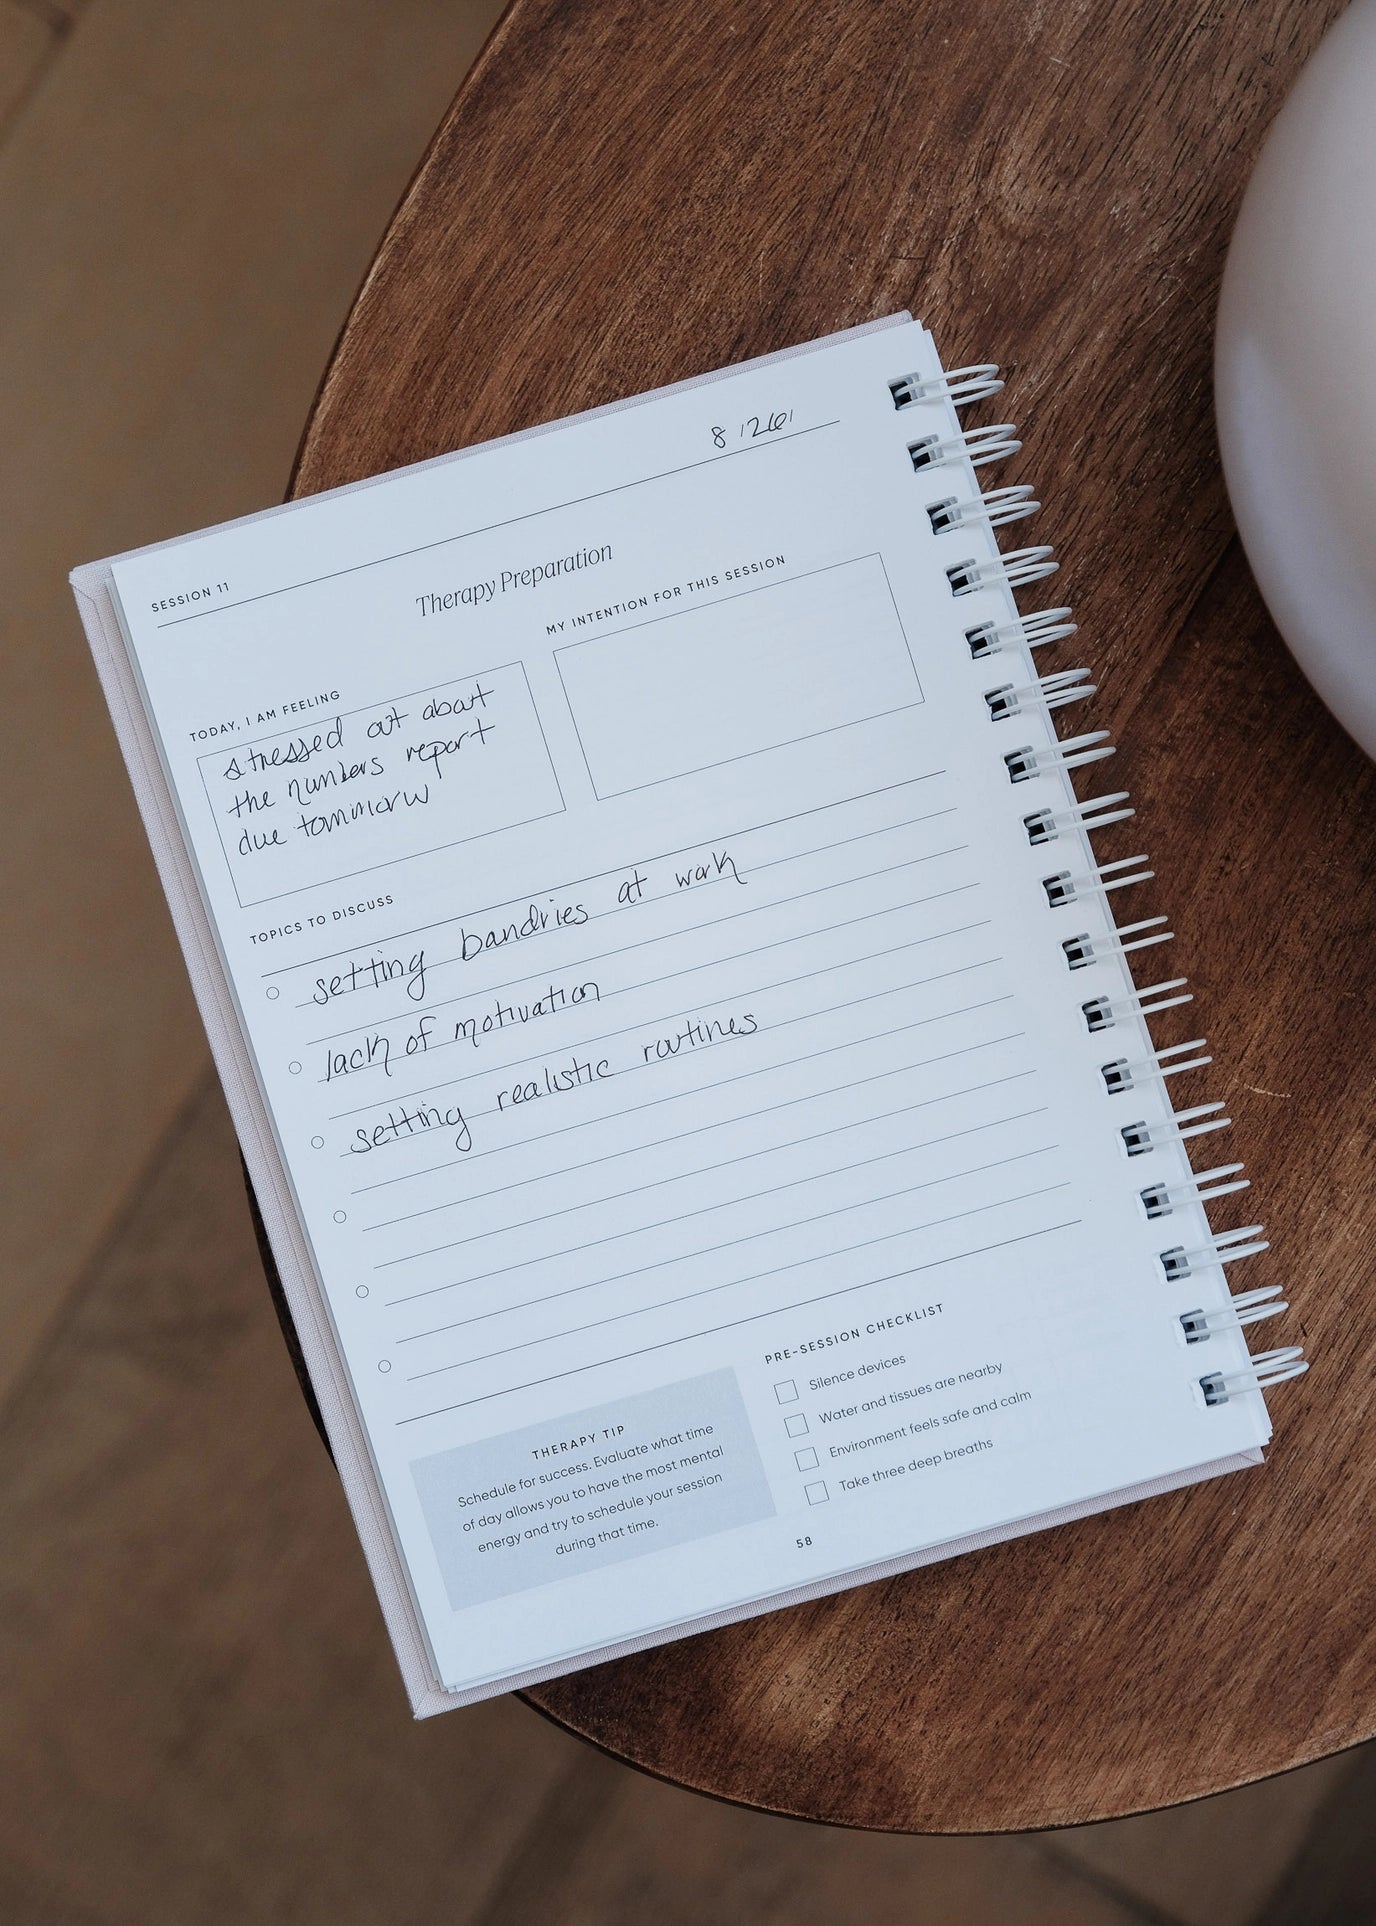 8 /26/
SESSION 11
Therapy Preparation
TODAY, I AM FEELING
stressed out about
the numbers report
due tommorw
MY INTENTION FOR THIS SESSION
TOPICS TO DISCUSS
setting bandries at work
lack of motivation
setting realistic routines
THERAPY TIP
Schedule for success. Evaluate what time
of day allows you to have the most mental
energy and try to schedule your session
during that time.
PRE-SESSION CHECKLIST
Silence devices
Water and tissues are nearby
Environment feels safe and calm
Take three deep breaths
58